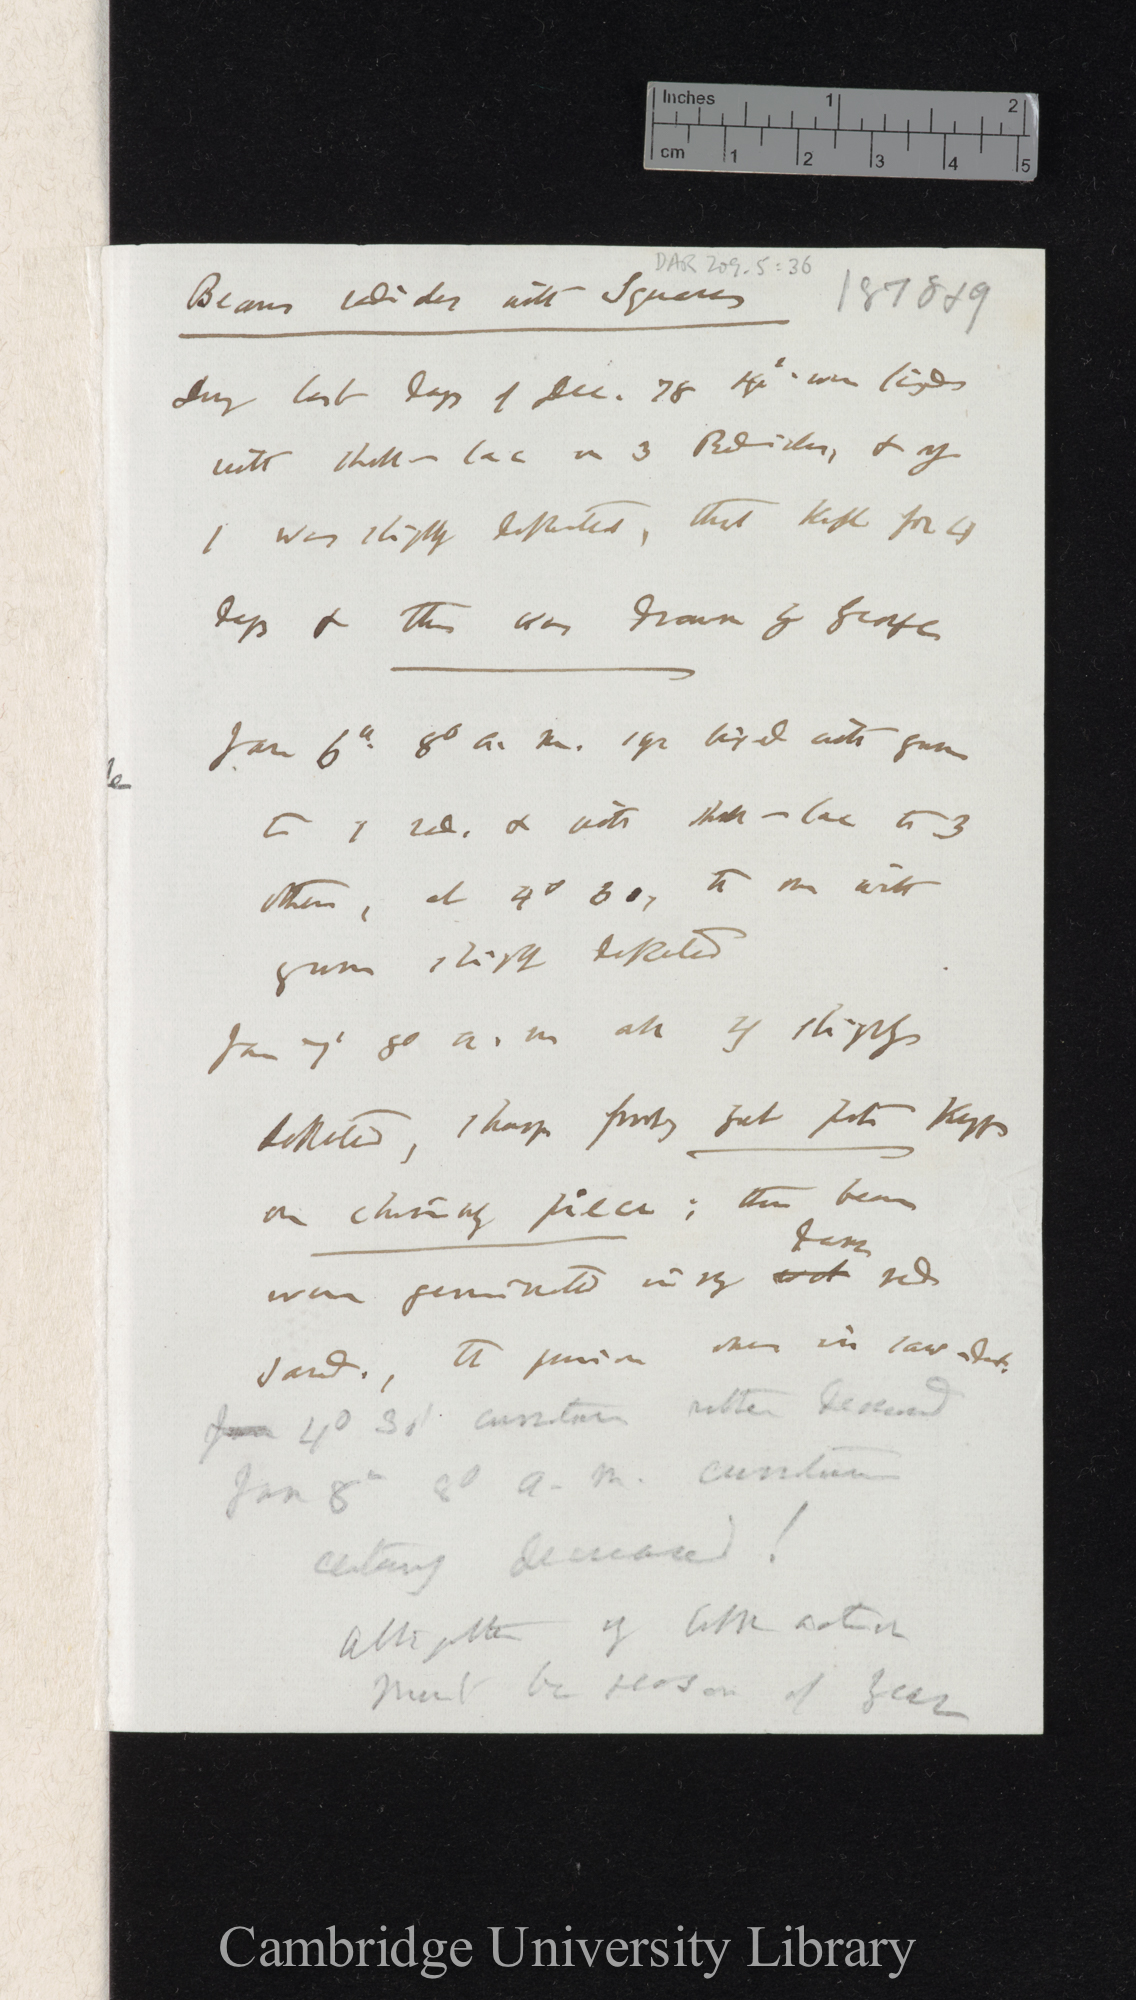 Inches 1 2
cm 1 2 3 4 5
DAR 209.5:36
Beans radicles with Squares
1878&9
During last days of Dec. 78 were fixed
with shell-lac on 3 Radicles, & only
1 was slightly deflected, that kept for 4
days & this was drawn by George
Jan 6th 8° a. m. sqrs fixed with gum
to 1 rad. & with shell-lac to 3
others, at 4° 30, the one with
gum slightly deflected
Jan 7th 8° a. m all 4 slightly
deflected,
on chimney piece; these beans
were germinated in my damp red
sand., the previous ones in saw-dust.
Jan 4° 30' curvature rather decreased
Jan 8th 8° a. m. curvature
certainly decreased!
Altogether very little action
must be season of year
Cambridge University Library